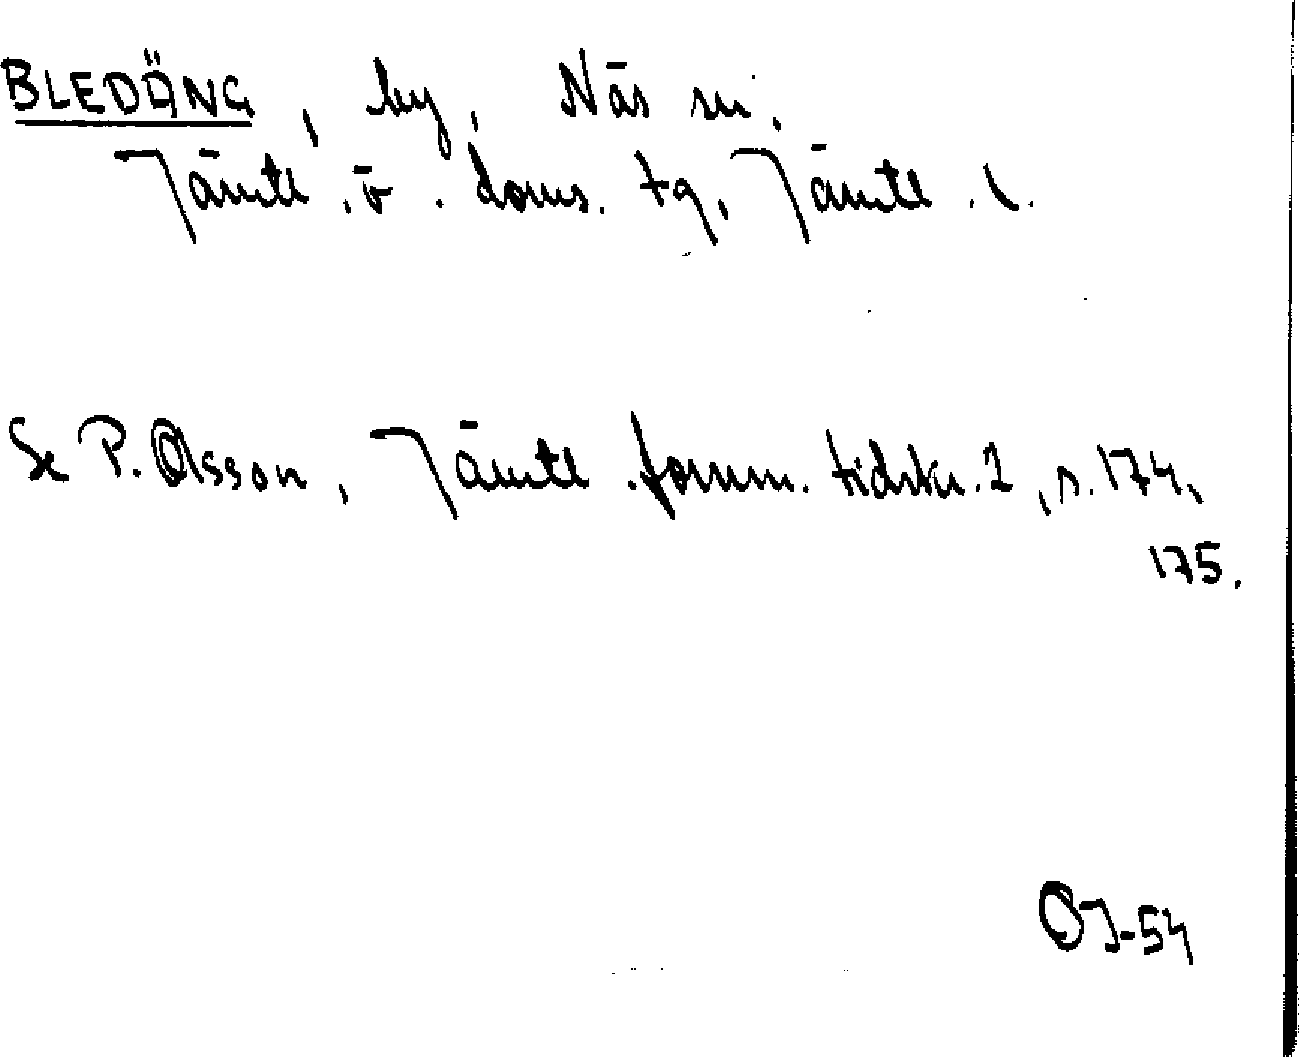 BLEDÄNG, by, Näs sn.
Jämtl. ö. doms. tg, Jämtl. l.
Se P. Olsson, Jämtl. fornm. tidskr. 2, s. 174,
175.
OJ-54